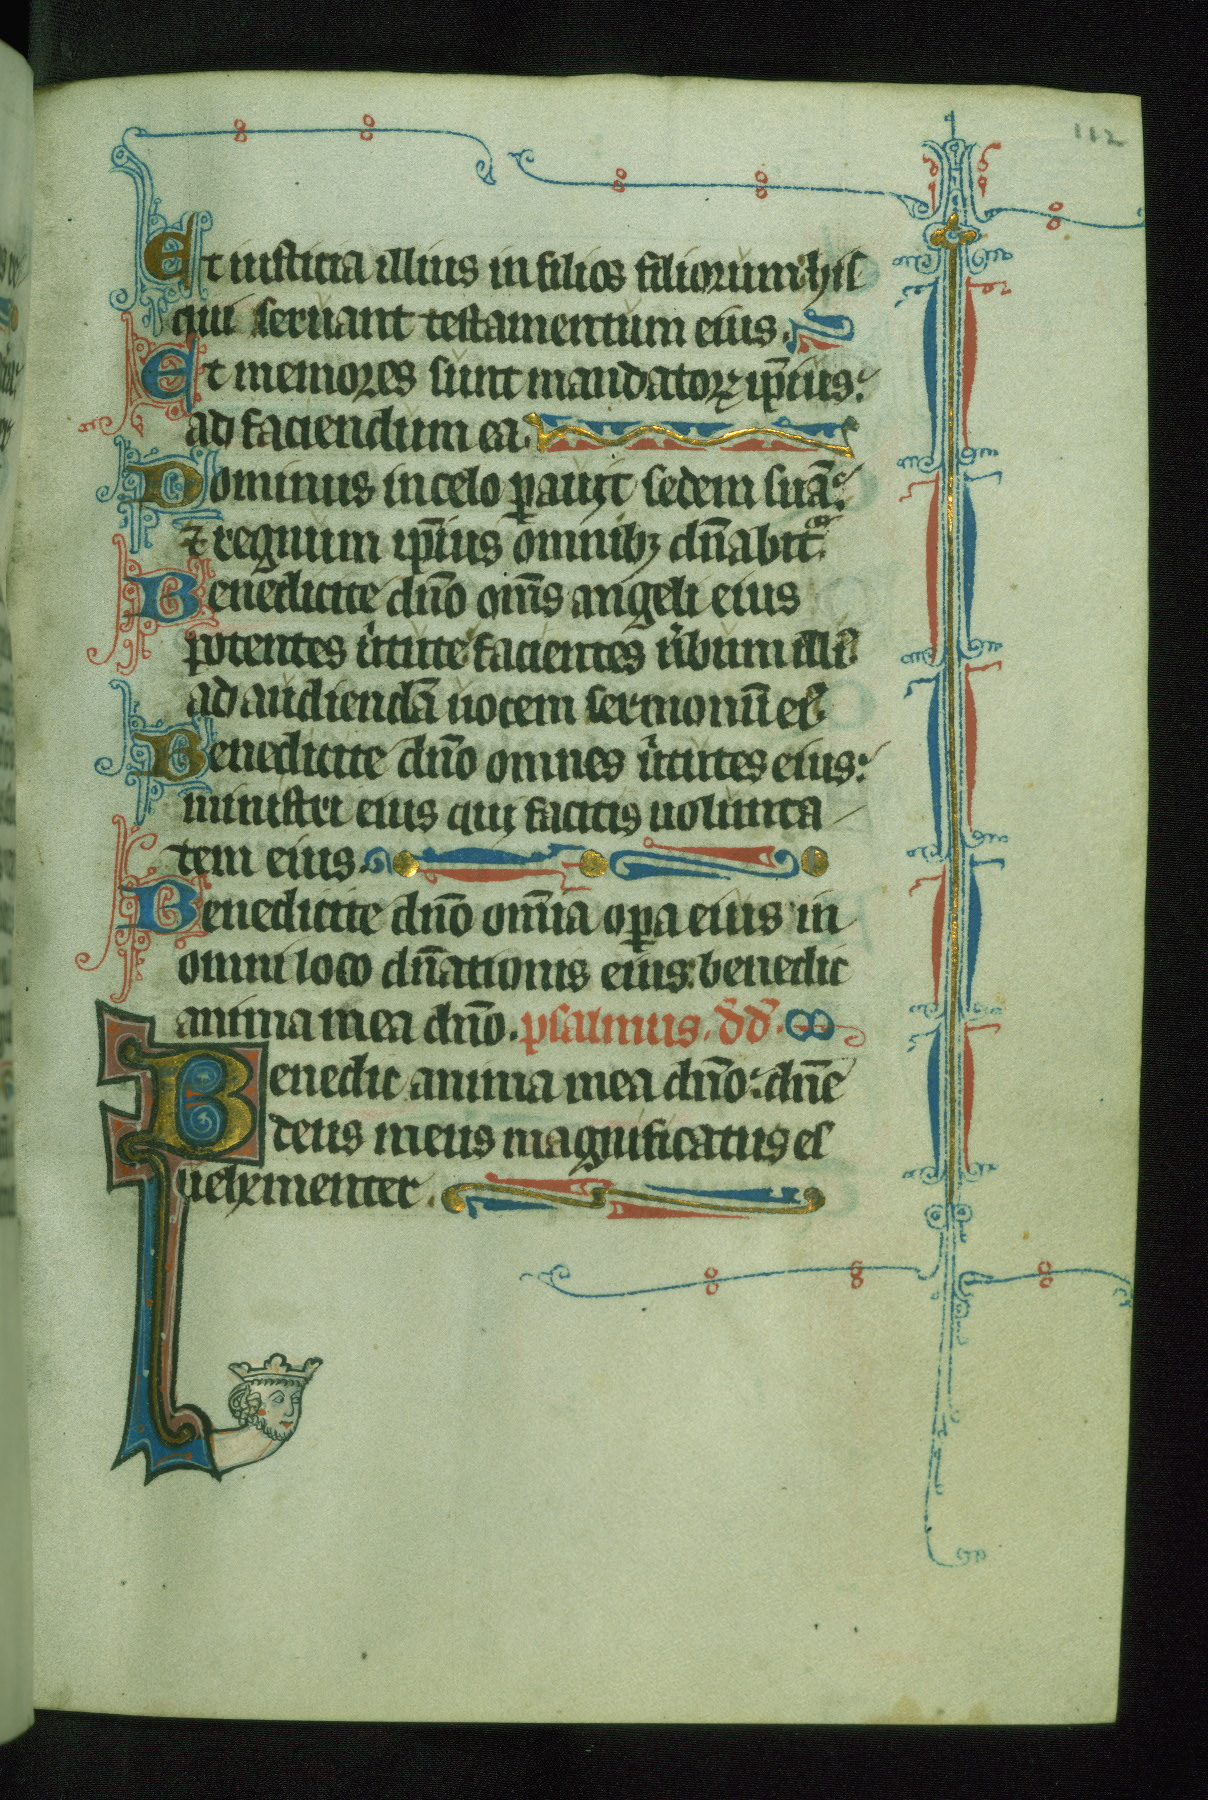 112
Et iusticia illius in filios filiorum his
qui seruant testamentum eius.
Et memores sunt mandatoꝝ ip̄ius:
ad faciendum ea.
Dominus in celo ꝑauit sedem suā:
⁊ regnum ip̄ius omnibꝫ dn̄abitᷣ.
Benedicite dn̄o om̄s angeli eius
potentes uͥtute facientes ūbum illiꝰ
ad audiendā uocem sermonū eiꝰ
Benedicite dn̄o omnes uͥtutes eius:
ministri eius qui facitis uolunta
tem eius
Benedicite dn̄o om̄ia oꝑa eius in
omni loco dn̄ationis eius: benedic
anima mea dn̄o. psalmus. dd̄.
Benedic anima mea dn̄o: dn̄e
deus meus magnificatus es
uehementer.